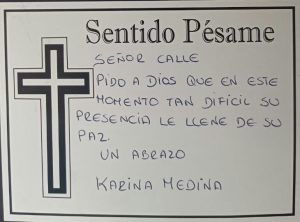 Sentido Pésame
SEÑOR CALLE
PIDO A DIOS QUE EN ESTE
MOMENTO TAN DIFICIL SU
PRESENCIA LE LLENE DE SU
PAZ.
UN ABRAZO
KARINA MEDINA